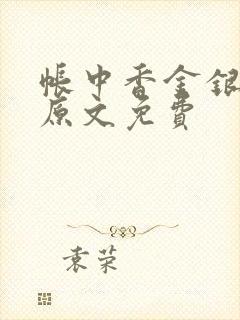 帐中香金银
原文免费
袁荣